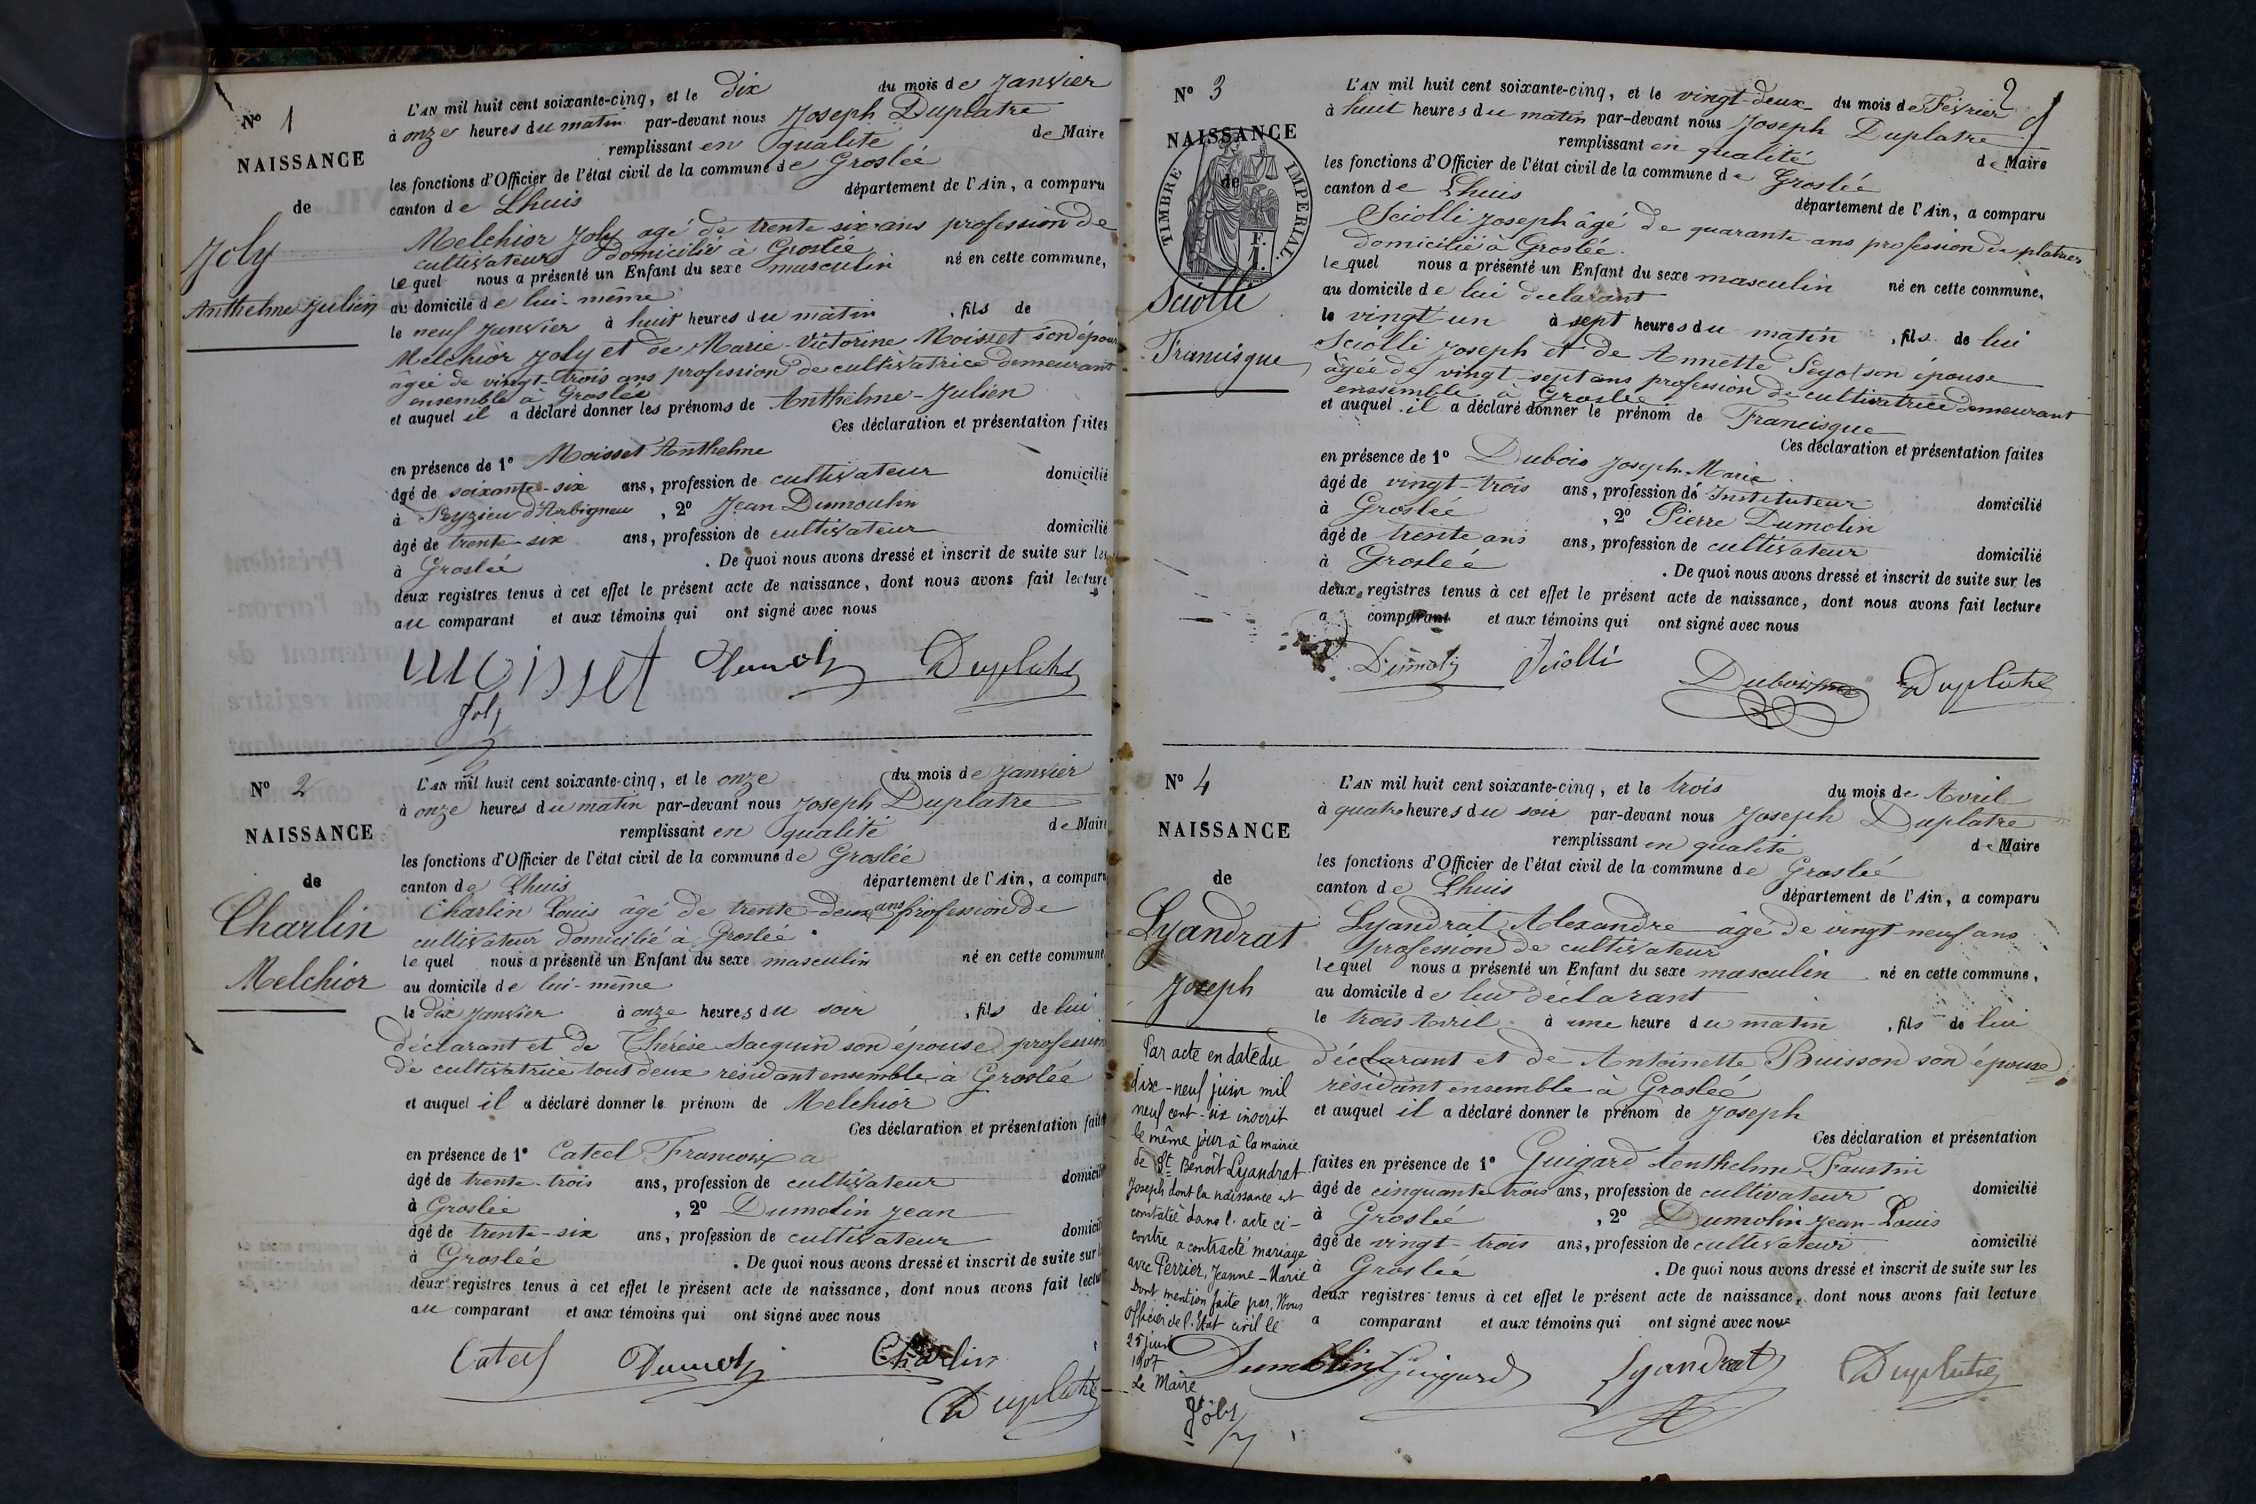 N° 1
NAISSANCE
de
Joly
Anthelme Julien
L'AN mil huit cent soixante-cinq, et le dix du mois de Janvier
à onze heures du matin par-devant nous Joseph Duplatre
remplissant en qualité de Maire
les fonctions d'Officier de l'état civil de la commune de Groslée
canton de Lhuis département de l'Ain, a comparu
Melchior Joly agé de trente six ans profession de
cultivateur domicilié à Groslée
lequel nous a présenté un Enfant du sexe masculin né en cette commune,
au domicile de lui-même
le neuf Janvier à huit heures du matin, fils de
Melchior Joly et de Marie-Victorine Moisset son épouse
âgée de vingt-trois ans profession de cultivatrice demeurant
ensemble à Groslée
et auquel il a déclaré donner les prénoms de Anthelme-Julien
Ces déclaration et présentation faites
en présence de 1° Moisset Anthelme
âgé de soixante-six ans, profession de cultivateur domicilié
à Peyzieu d'Arbignieu, 2° Jean Dumoulin
âgé de trente-six ans, profession de cultivateur domicilié
à Groslée. De quoi nous avons dressé et inscrit de suite sur les
deux registres tenus à cet effet le présent acte de naissance, dont nous avons fait lecture
au comparant et aux témoins qui ont signé avec nous
Moisset Dumolin Duplatre
Joly
N° 2
NAISSANCE
de
Charlin
Melchior
L'AN mil huit cent soixante-cinq, et le onze du mois de Janvier
à onze heures du matin par-devant nous Joseph Duplatre
remplissant en qualité de Maire
les fonctions d'Officier de l'état civil de la commune de Groslée
canton de Lhuis département de l'Ain, a comparu
Charlin Louis âgé de trente-deux ans profession de
cultivateur domicilié à Groslée
lequel nous a présenté un Enfant du sexe masculin né en cette commune
au domicile de lui-même
le dix Janvier à onze heures du soir, fils de lui
déclarant et de Thérèse Jacquin son épouse profession
de cultivatrice tout deux résidant ensemble à Groslée
et auquel il a déclaré donner le prénom de Melchior
Ces déclaration et présentation faites
en présence de 1° Catcel Francois
âgé de trente-trois ans, profession de cultivateur domicilié
à Groslée, 2° Dumolin Jean
âgé de trente-six ans, profession de cultivateur domicilié
à Groslée. De quoi nous avons dressé et inscrit de suite sur les
deux registres tenus à cet effet le présent acte de naissance, dont nous avons fait lecture
au comparant et aux témoins qui ont signé avec nous
Catcel Dumolin Charlin
Duplatre
2
N° 3
NAISSANCE
de
TIMBRE IMPERIAL
Sciolli
Francisque
L'AN mil huit cent soixante-cinq, et le vingt-deux du mois de Février
à huit heures du matin par-devant nous Joseph Duplatre
remplissant en qualité de Maire
les fonctions d'Officier de l'état civil de la commune de Groslée
canton de Lhuis département de l'Ain, a comparu
Sciolli Joseph âgé de quarante ans profession de platrier
domicilié à Groslée
lequel nous a présenté un Enfant du sexe masculin né en cette commune,
au domicile de lui declarant
le vingt-un à sept heures du matin, fils de lui
Sciolli Joseph et de Annette Peyot son épouse
âgée de vingt sept ans profession de cultivatrice demeurant
ensemble à Groslée
et auquel il a déclaré donner le prénom de Francisque
Ces déclaration et présentation faites
en présence de 1° Dubois Joseph-Marie
âgé de vingt-trois ans, profession de Instituteur domicilié
à Groslée, 2° Pierre Dumolin
âgé de trente ans ans, profession de cultivateur domicilié
à Groslée. De quoi nous avons dressé et inscrit de suite sur les
deux registres tenus à cet effet le présent acte de naissance, dont nous avons fait lecture
a comparant et aux témoins qui ont signé avec nous
Dumolin Sciolli
Dubois Duplatre
N° 4
NAISSANCE
de
Lyandrat
Joseph
Par acte en date du
dix-neuf juin mil
neuf cent-six inscrit
le même jour à la mairie
de St Benoît Lyandrat
Joseph dont la naissance est
constatée dans l'acte ci-
contre a contracté mariage
avec Perrier, Jeanne-Marie
Dont mention faite par Nous
Officier de l'Etat civil le
25 juin
1907
Le Maire
Joly
L'AN mil huit cent soixante-cinq, et le trois du mois de Avril
à quatre heures du soir par-devant nous Joseph Duplatre
remplissant en qualité de Maire
les fonctions d'Officier de l'état civil de la commune de Groslée
canton de Lhuis département de l'Ain, a comparu
Lyandrat Alexandre âgé de vingt-neuf ans
profession de cultivateur
lequel nous a présenté un Enfant du sexe masculin né en cette commune,
au domicile de lui déclarant
le trois Avril à une heure du matin, fils de lui
déclarant et de Antoinette Buisson son épouse
résidant ensemble à Groslée
et auquel il a déclaré donner le prénom de Joseph
Ces déclaration et présentation
faites en présence de 1° Guigard Anthelme Faustin
âgé de cinquante trois ans, profession de cultivateur domicilié
à Groslée, 2° Dumolin Jean-Louis
âgé de vingt-trois ans, profession de cultivateur domicilié
à Groslée. De quoi nous avons dressé et inscrit de suite sur les
deux registres tenus à cet effet le présent acte de naissance, dont nous avons fait lecture
a comparant et aux témoins qui ont signé avec nous
Dumollin Guiguard Lyandrat Duplatre